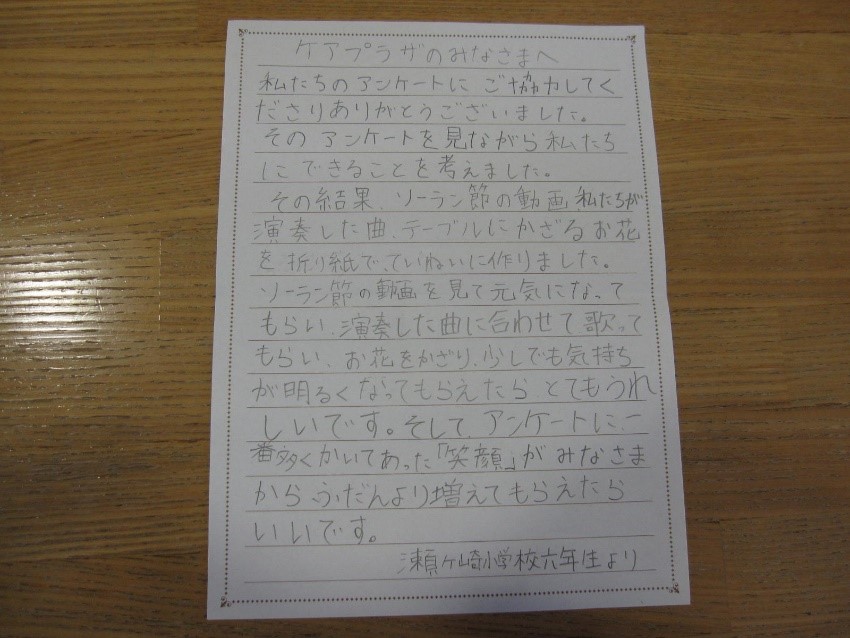 ケアプラザのみなさまへ
私たちのアンケートにご協力してく
ださりありがとうございました。
そのアンケートを見ながら私たち
にできることを考えました。
その結果、ソーラン節の動画、私たちが
演奏した曲、テーブルにかざるお花
を折り紙で、ていねいに作りました。
ソーラン節の動画を見て元気になって
もらい、演奏した曲に合わせて歌って
もらい、お花をかざり、少しでも気持ち
が明るくなってもらえたら、とてもうれ
しいです。そして、アンケートに、一
番多くかいてあった「笑顔」がみなさま
から、ふだんより増えてもらえたら
いいです。
瀬ヶ崎小学校六年生より